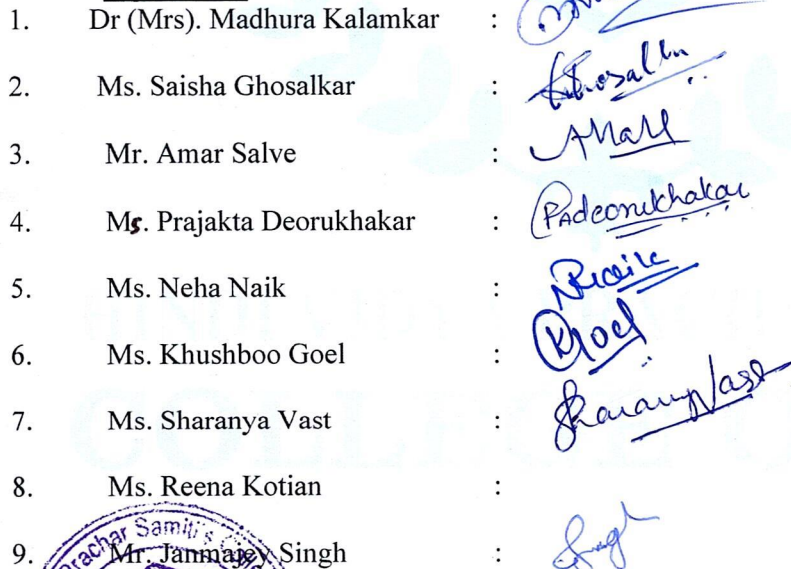 1. Dr (Mrs). Madhura Kalamkar :
2. Ms. Saisha Ghosalkar : Ghosalkar
3. Mr. Amar Salve :
4. Ms. Prajakta Deorukhakar : PAdeorukhakar
5. Ms. Neha Naik : NNaik
6. Ms. Khushboo Goel : KGoel
7. Ms. Sharanya Vast : Sharanya Vast
8. Ms. Reena Kotian :
9. Mr. Janmajey Singh : Singh
Prachar Samiti's
COLLEGE